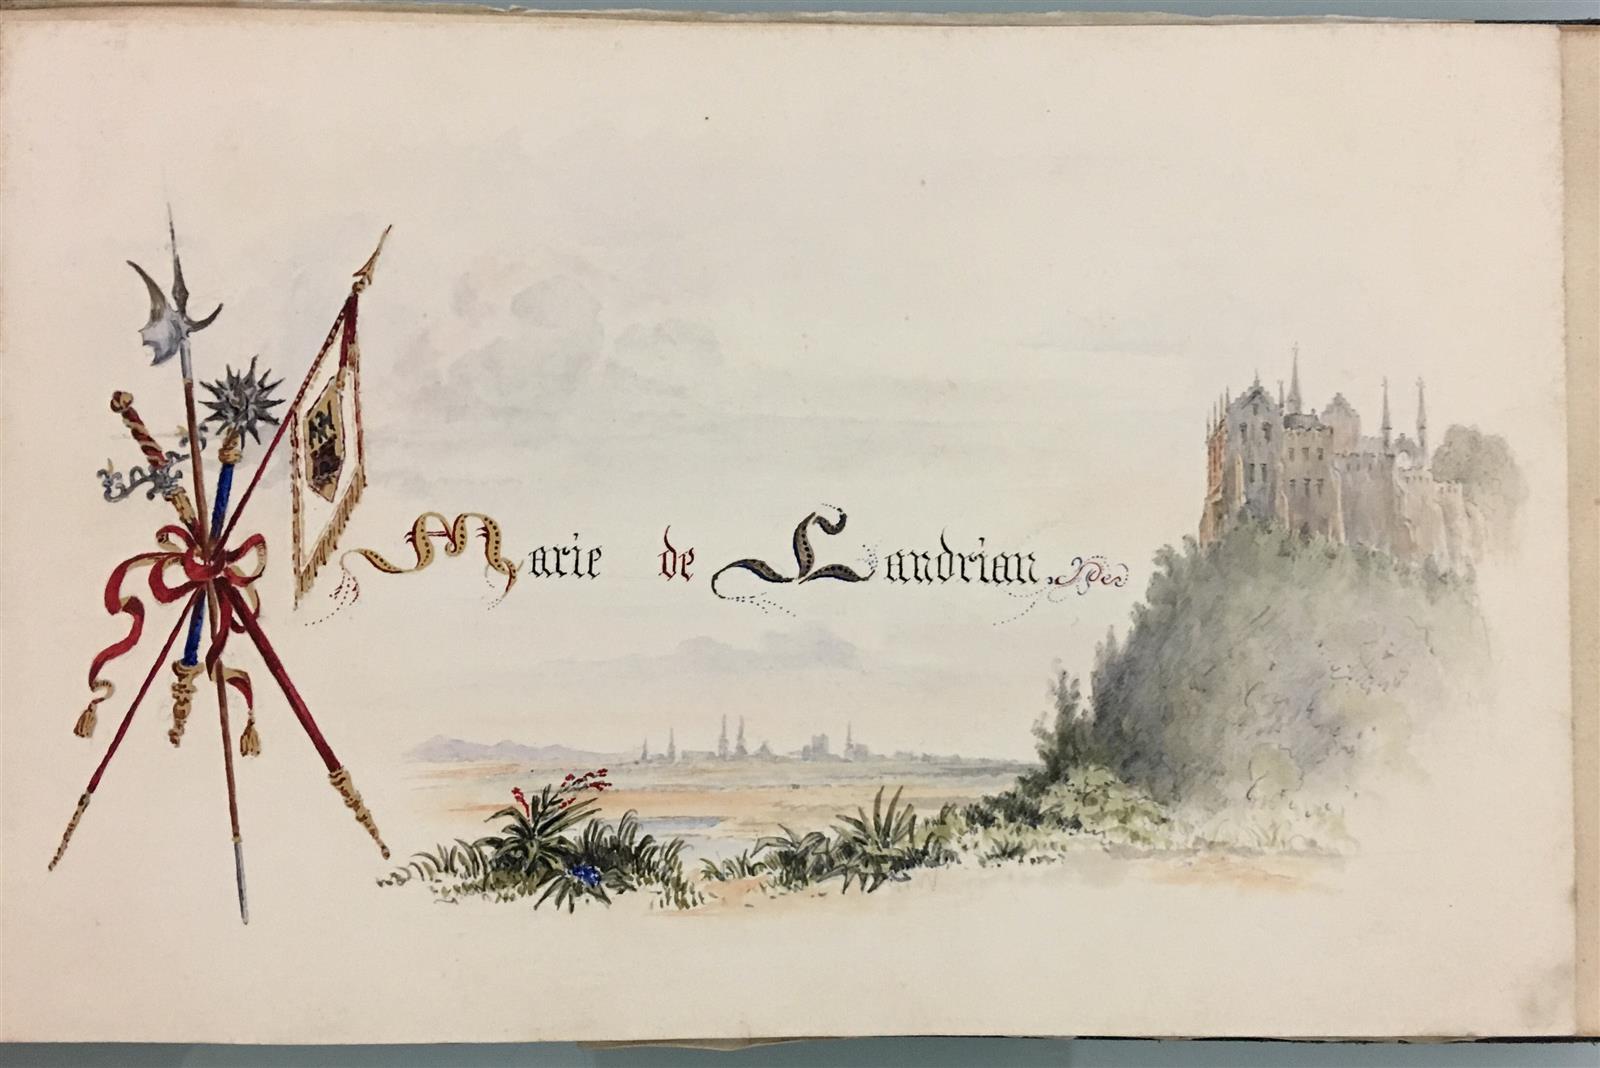 Marie de Landrian